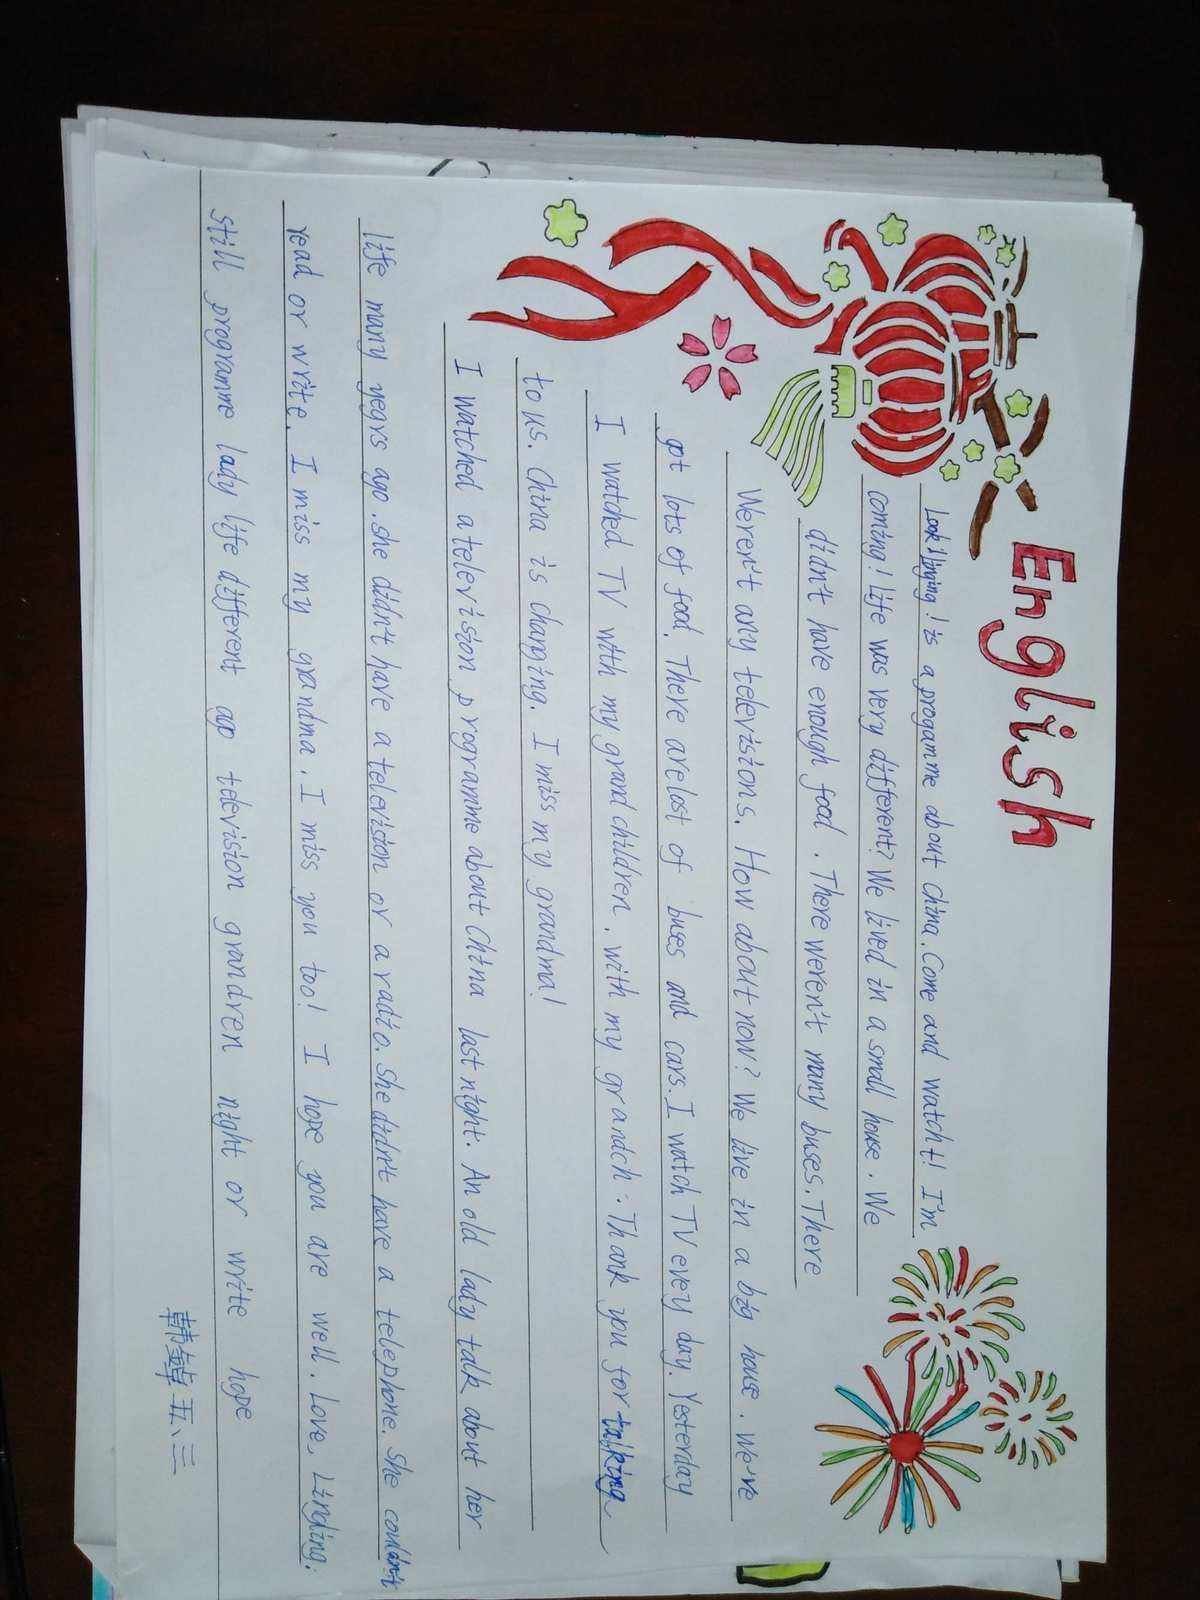 English
Look! Jinging! is a progamme about China. Come and watch! I'm
coming! Life was very different? We lived in a small house. We
didn't have enough food. There weren't many buses. There
Weren't any televisions. How about now? We live in a big house. we've
got lots of food. There are lost of buses and cars. I watch TV every day. Yesterday
I watched TV with my grand children. with my grandch. Thank you for talking
to us. China is changing. I miss my grandma!
I watched a television programme about China last night. An old lady talk about her
life many yegrs ago. she didn't have a television or a radio. She didn't have a telephone. She couldn't
read or write. I miss my grandma. I miss you too! I hope you are well. Love. Lingling.
still programme lady life different ago television grandren night or write hope
五、三